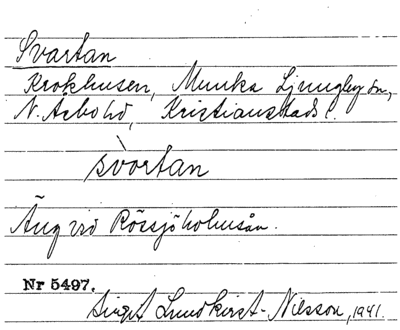 Svartan
Krokhusen, Munka Ljungby sn,
N. Åsbo hd, Kristianstads l.
svòrtan
Äng vid Rössjöholmsån.
Nr 5497.
Birgit Lundkvist-Nilsson, 1941.